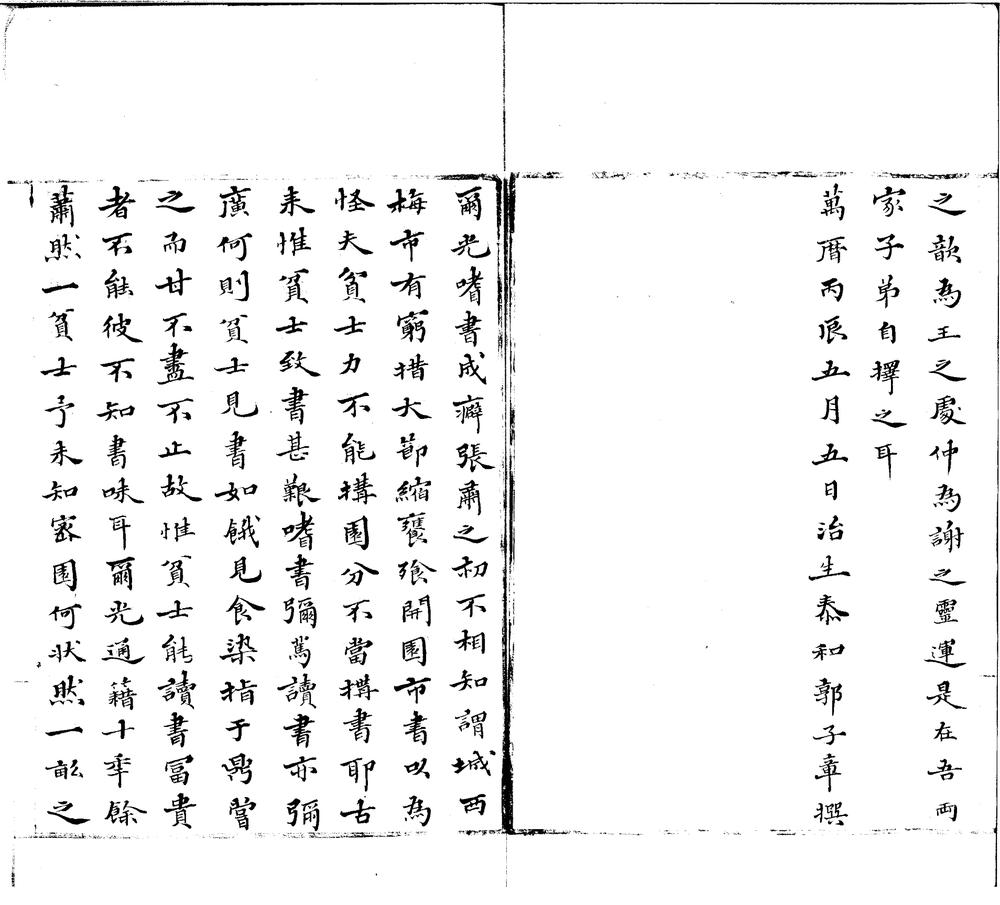 之歆為王之處仲為謝之靈運是在吾両
家子弟自擇之耳
萬曆丙辰五月五日治生泰和郭子章撰
爾光嗜書成癖張肅之初不相知謂城西
梅市有窮措大節縮饔飱開園市書以為
怪夫貧士力不能搆園分不當搆書耶古
未惟貧士致書甚艱嗜書彌篤讀書亦彌
廣何則貧士見書如餓見食染指于鼎嘗
之而甘不盡不止故惟貧士能讀書冨貴
者不能彼不知書味耳爾光通籍十年餘
蕭然一貧士予未知密園何狀然一畝之